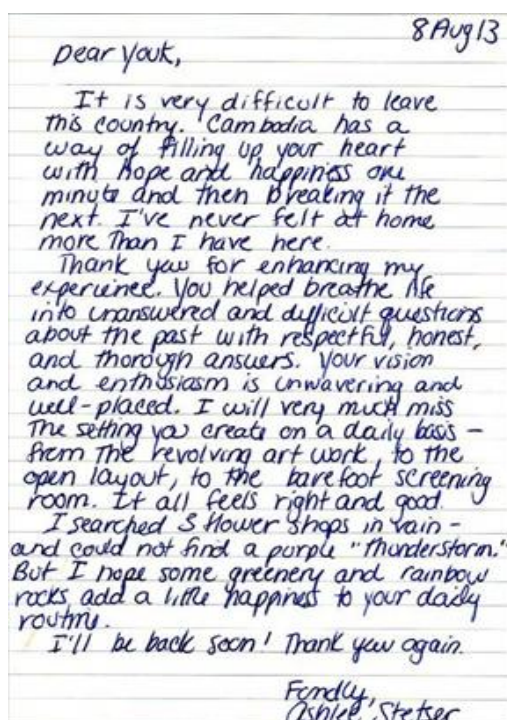 8 Aug 13
Dear Youk,
It is very difficult to leave
this country. Cambodia has a
way of filling up your heart
with hope and happiness one
minute and then breaking it the
next. I've never felt at home
more than I have here.
Thank you for enhancing my
experience. You helped breathe life
into unanswered and difficult questions
about the past with respectful, honest,
and thorough answers. Your vision
and enthusiasm is unwavering and
well-placed. I will very much miss
the setting you create on a daily basis -
from the revolving art work, to the
open layout, to the barefoot screening
room. It all feels right and good.
I searched 3 flower shops in vain -
and could not find a purple "Thunderstorm."
But I hope some greenery and rainbow
rocks add a little happiness to your daily
routine.
I'll be back soon! Thank you again.
Fondly,
Ashlee Stetser